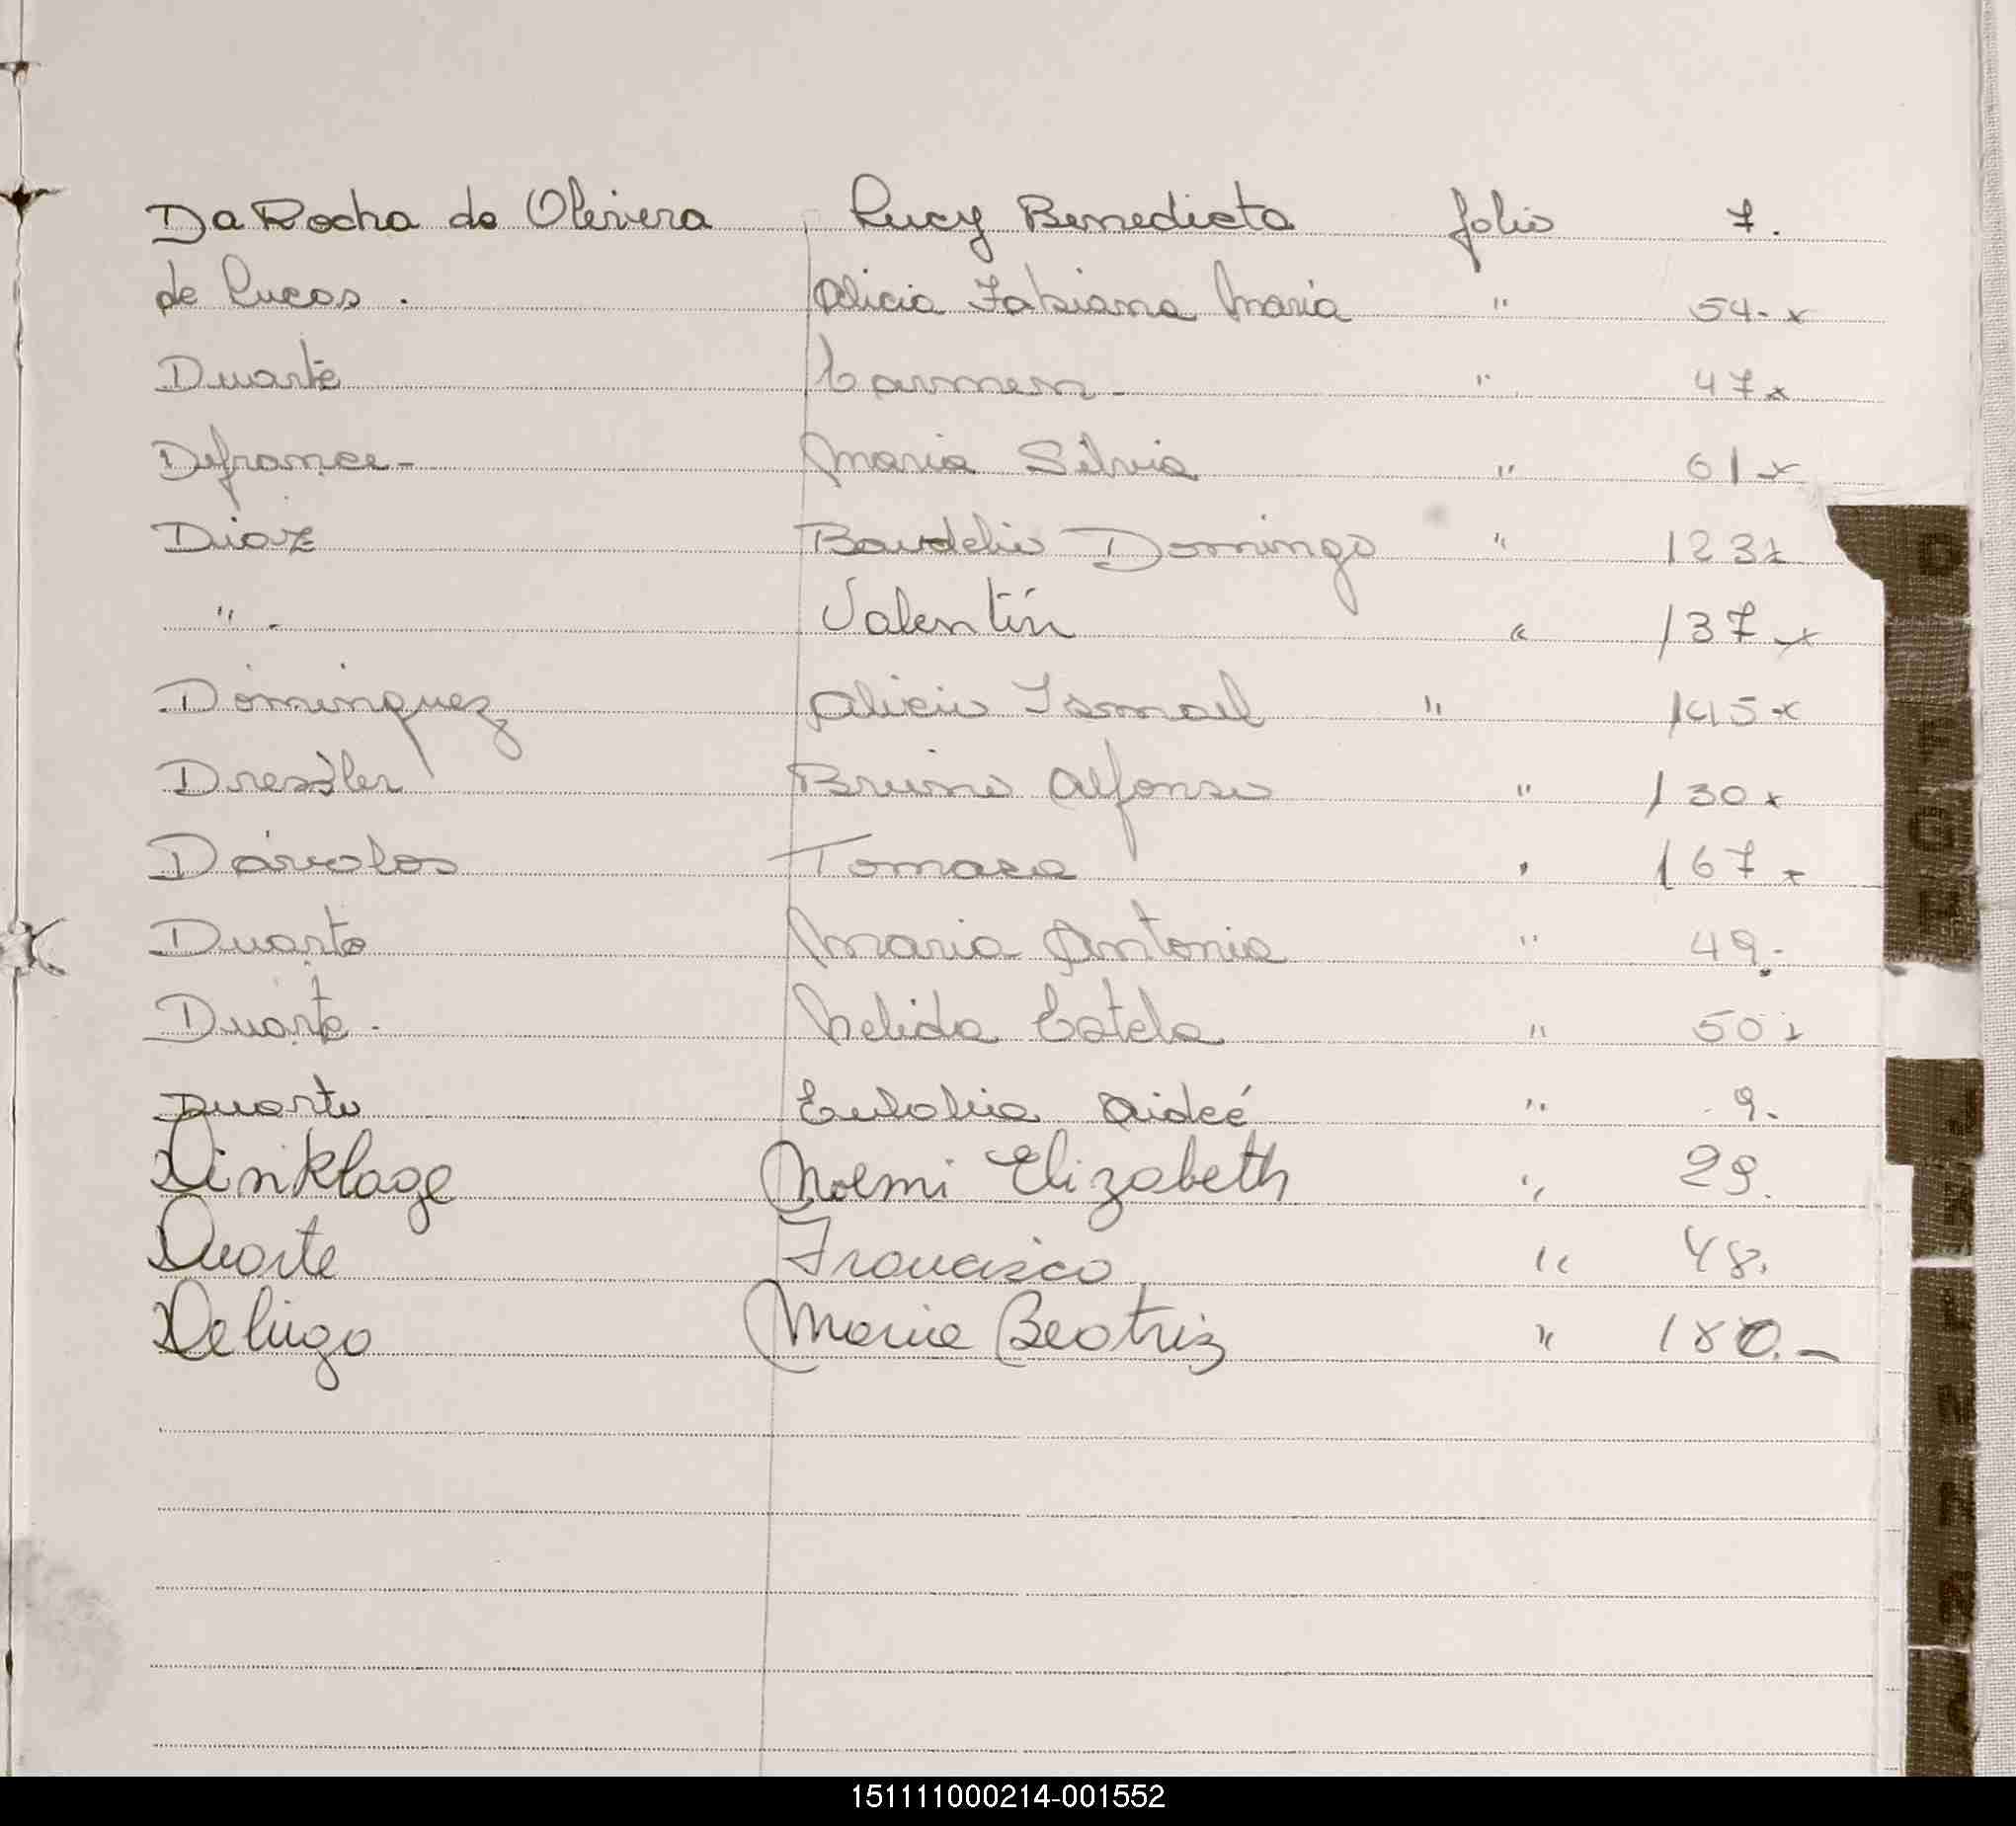 Da Rocha de Olivera Lucy Benedicta folio 7.
de Lucas. Alicia Fabiana Maria " 54.x
Duarte Carmen " 47x
Defrance- Maria Silvia " 61x
Diaz Baudelio Domingo " 123x
" - Valentín " 137x
Dominguez Alicio Ismael " 145x
Dressler Bruno Alfonso " 130x
Dávalos Tomasa " 167x
Duarte Maria Antonia " 49.
Duarte. Nelida Estela " 50x
Duarte Eulalia Aideé " 9.
Dinklage Noemi Elizabeth " 29.
Duarte Francisco " 48.
Delugo Maria Beatriz " 180.-
D
F
G
H
J
K
151111000214-001552